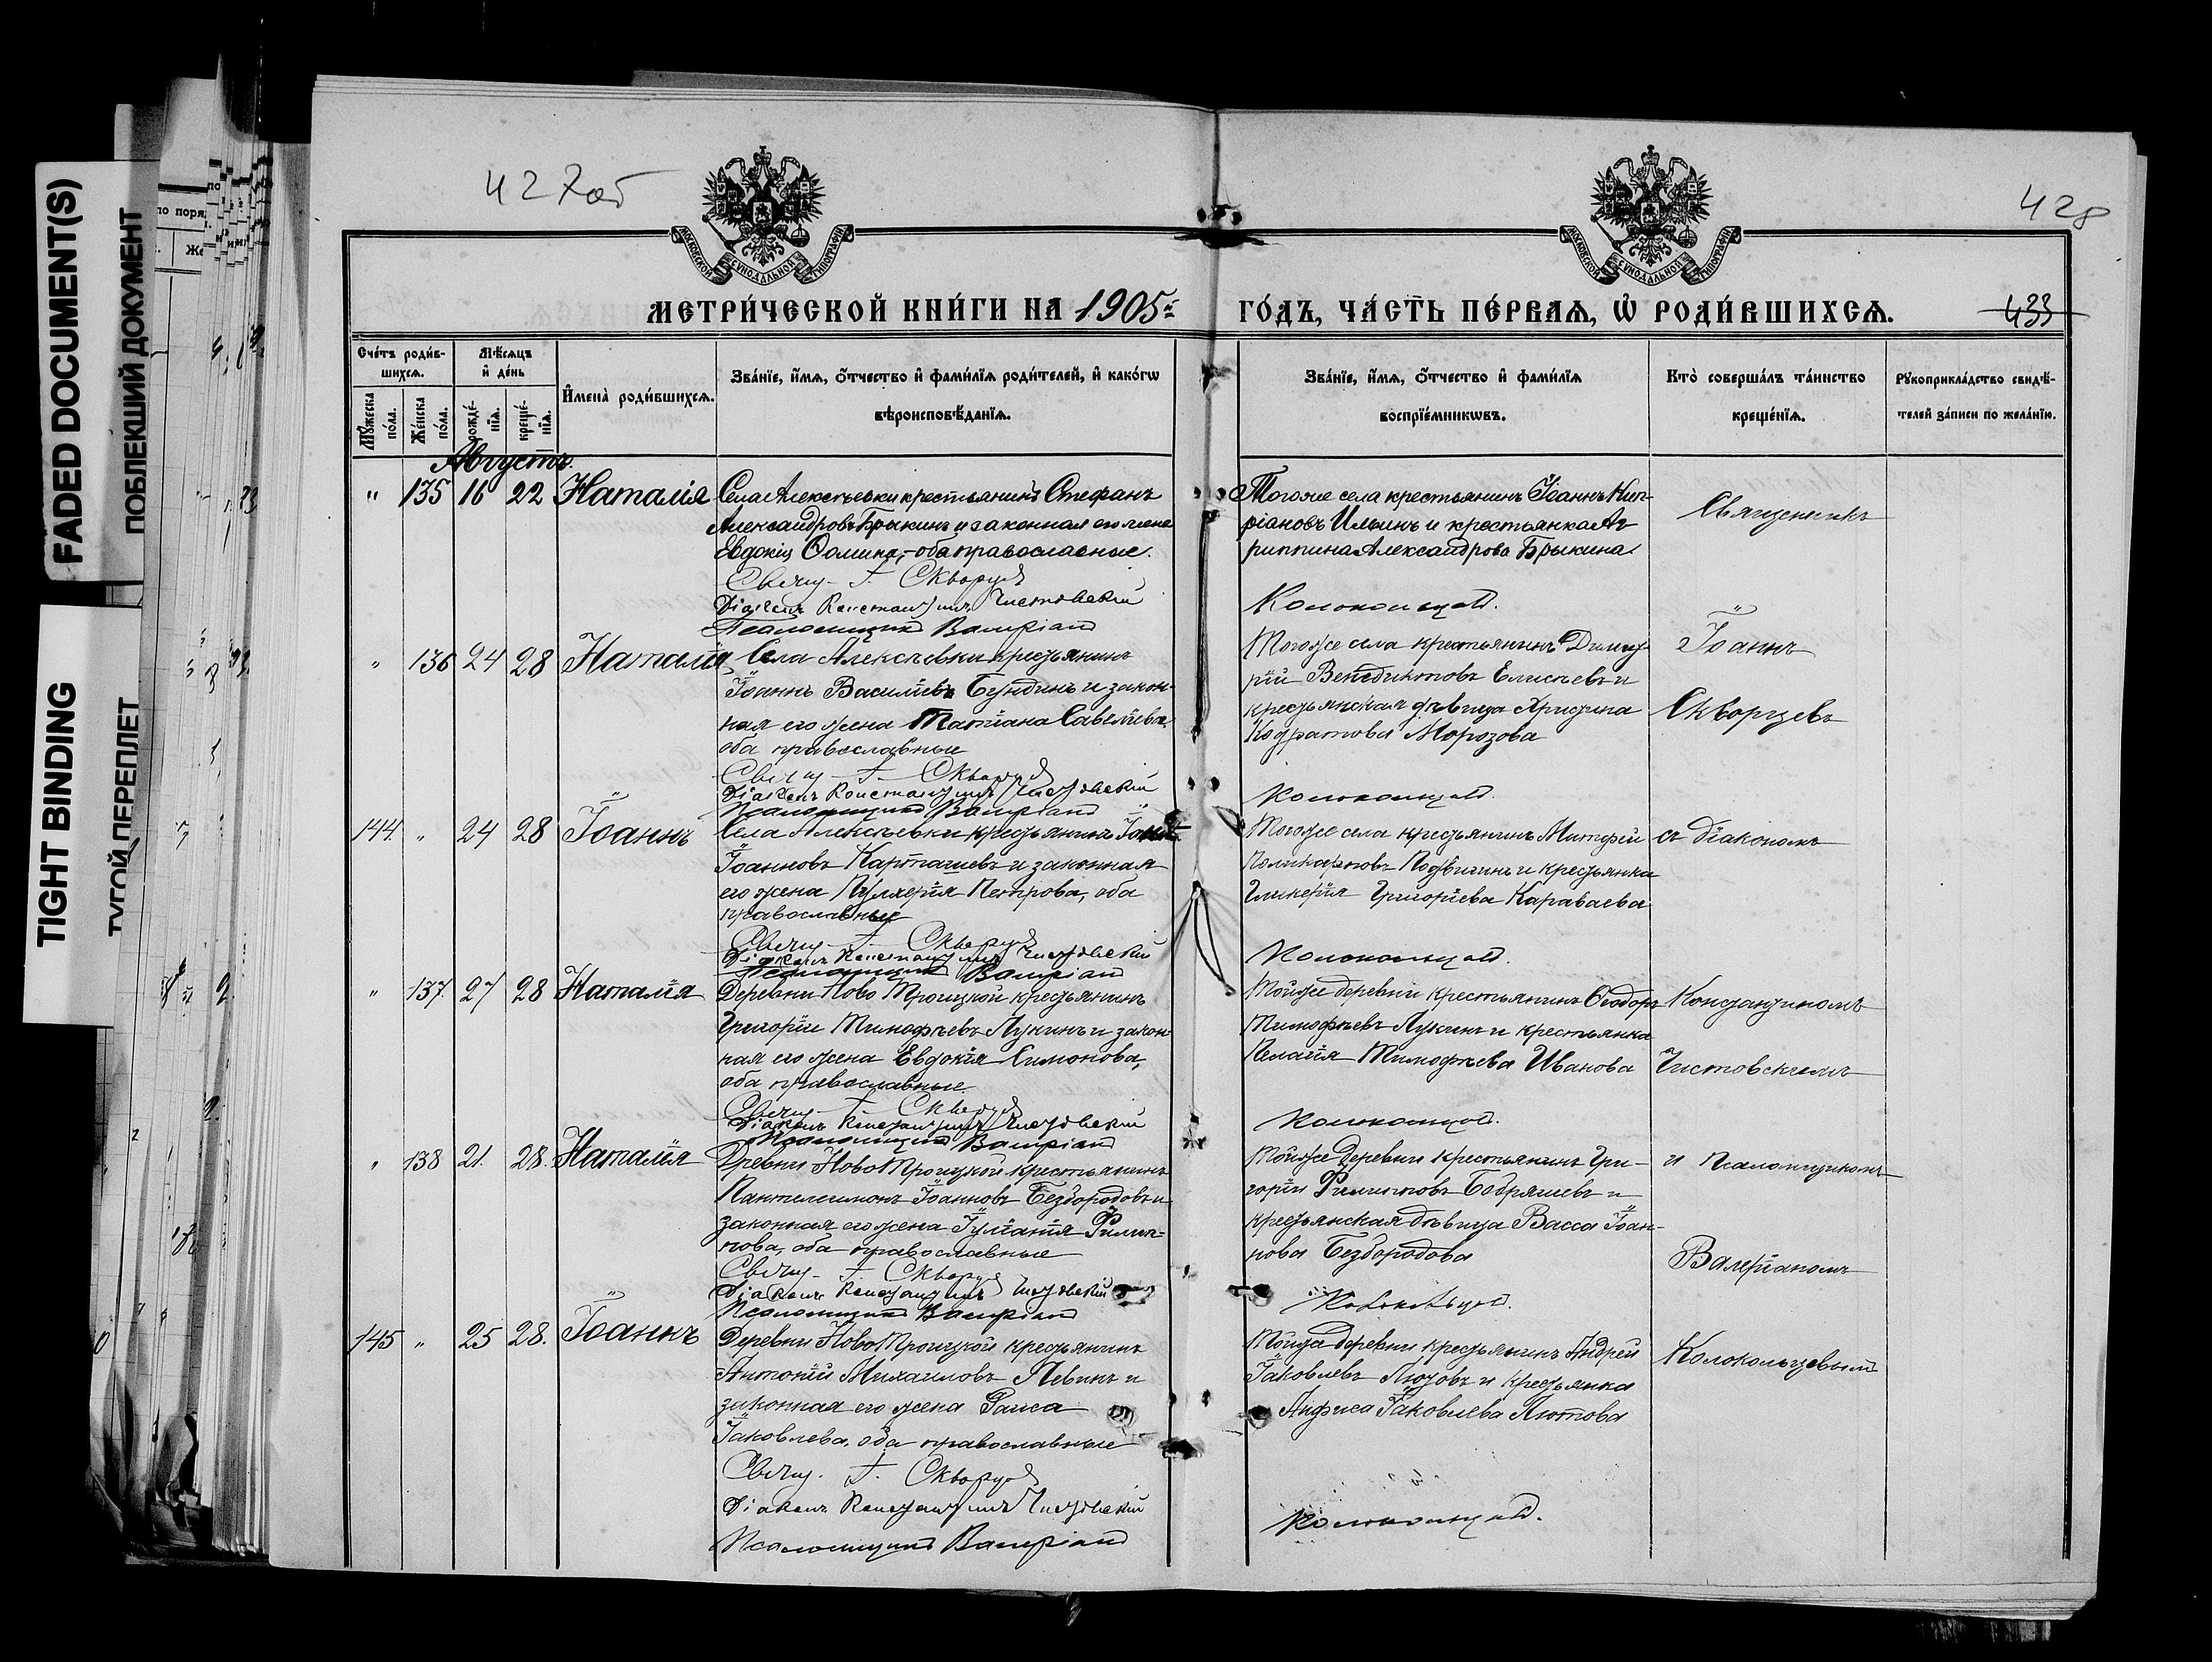 FADED DOCUMENT(S)
ПОБЛЕКШИЙ ДОКУМЕНТ
TIGHT BINDING
ТУГОЙ ПЕРЕПЛЕТ
427об
428
МОСКОВСКОЙ СѴНОДАЛЬНОЙ ТИПОГРАФІИ
МОСКОВСКОЙ СѴНОДАЛЬНОЙ ТИПОГРАФІИ
МЕТРИ́ЧЕСКОЙ КНИ́ГИ НА 1905й
ГО́ДЪ, ЧА́СТЬ ПЕ́РВАѦ, Ѽ РОДИ́ВШИХСѦ.
433
Сче́тъ роди́в-
шихсѧ.
Мꙋ́жеска по́ла.
Же́нска по́ла.
Мѣ́сѧцъ
и҆ де́нь
рожде́-
нїѧ.
креще́-
нїѧ.
И҆мена̀ роди́вшихсѧ.
Зва́нїе, и҆́мѧ, ѻ҆́тчество и҆ фами́лїѧ роди́телей, и҆ како́гѡ
вѣроисповѣ́данїѧ.
Зва́нїе, и҆́мѧ, ѻ҆́тчество и҆ фами́лїѧ
воспрїе́мникѡвъ.
Кто̀ соверша́лъ та́инство
креще́нїѧ.
Рꙋкоприкла́дство свидѣ́-
телей за́писи по жела́нїю.
Августъ.
" 135 16 22 Наталія
Села Алексѣевки крестьянинъ Стефанъ
Александровъ Брыкинъ и законная его жена
Евдокія Ѳомина, оба православные.
Свящ. І. Скворцовъ
Діаконъ Константинъ Чистовскій
Псаломщикъ Валеріанъ
Тогоже села крестьянинъ Іоаннъ Кип-
ріановъ Ильинъ и крестьянка Аг
риппина Александрова Брыкина
Колокольцевъ.
Священникъ
" 136 24 28 Наталія
Села Алексѣевки крестьянинъ
Іоаннъ Василіевъ Бундинъ и закон-
ная его жена Татіана Савеліева,
оба православные
Свящ. І. Скворцовъ
Діаконъ Константинъ Чистовскій
Псаломщикъ Валеріанъ
Тогоже села крестьянинъ Димит-
рій Венедиктовъ Елисѣевъ и
крестьянская дѣвица Христина
Кодратова Морозова
Колокольцевъ.
Іоаннъ
Скворцевъ
144. " 24 28 Іоаннъ
Села Алексѣевки крестьянинъ
Іоанновъ Карташевъ и законная
его жена Пулхерія Петрова, оба
православные
Свящ. І. Скворцовъ
Діаконъ Константинъ Чистовскій
Псаломщикъ Валеріанъ
Тогоже села крестьянинъ
Поликарповъ и крестьянка
Гликерія Григоріева Караваева
Колокольцевъ.
съ діакономъ
" 137. 27 28 Наталія
Деревни Ново Троицкой крестьянинъ
Григорій Тимофѣевъ Лукинъ и закон-
ная его жена Евдокія Симонова,
оба православные
Свящ. І. Скворцовъ
Діаконъ Константинъ Чистовскій
Псаломщикъ Валеріанъ
Тойже деревни крестьянинъ Ѳеодоръ
Тимофѣевъ Лукинъ и крестьянка
Пелагія Тимофѣева Иванова
Колокольцевъ.
Константиномъ
Чистовскимъ
" 138 21. 28. Наталія
Древни Ново Троицкой крестьянинъ
Пантелеимонъ Іоанновъ Безбородовъ и
законная его жена Іуліанія Филип-
пова, оба православные
Свящ. І. Скворцовъ
Діаконъ Константинъ Чистовскій
Псаломщикъ Валеріанъ
Тойже деревни крестьянинъ Гри-
горій Филиповъ и
крестьянская дѣвица Васса Іоан-
нова Безбородова
Колокольцевъ.
и псаломщикомъ
Валеріаномъ
145 " 25 28. Іоаннъ
Деревни Ново Троицкой крестьянинъ
Антоній Михаиловъ Левинъ и
законная его жена Раиса
Іаковлева, оба православные
Свящ. І. Скворцовъ
Діаконъ Константинъ Чистовскій
Псаломщикъ Валеріанъ
Тойже деревни крестьянинъ Андрей
Іаковлевъ Лютовъ и крестьянка
Анфиса Іаковлева Лютова
Колокольцевъ.
Колокольцевымъ